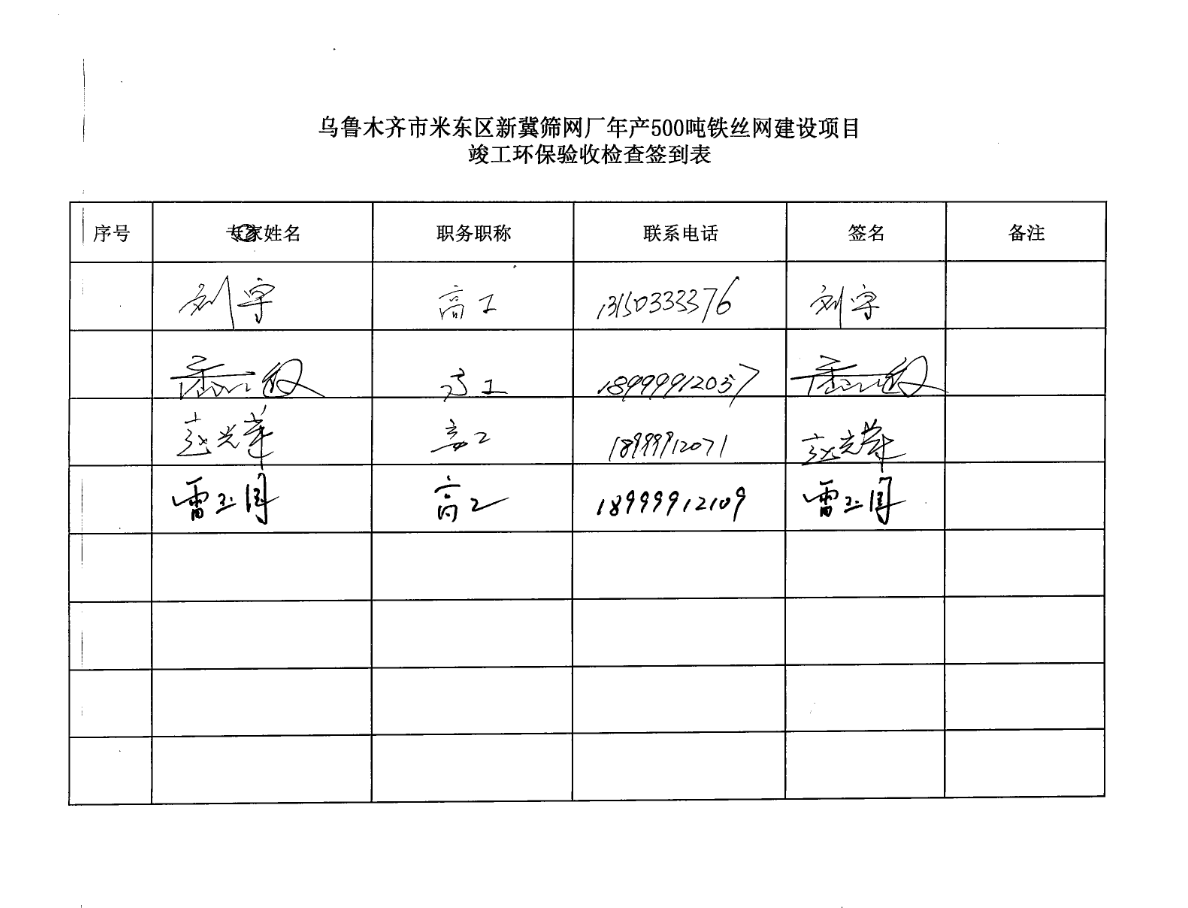 乌鲁木齐市米东区新冀筛网厂年产500吨铁丝网建设项目
竣工环保验收检查签到表
序号 专家姓名 职务职称 联系电话 签名 备注
刘宇 高工 13150333376 刘宇
高工 18999912037
赵光荣 高工 18999912071 赵光荣
雷玉 高工 18999912109 雷玉